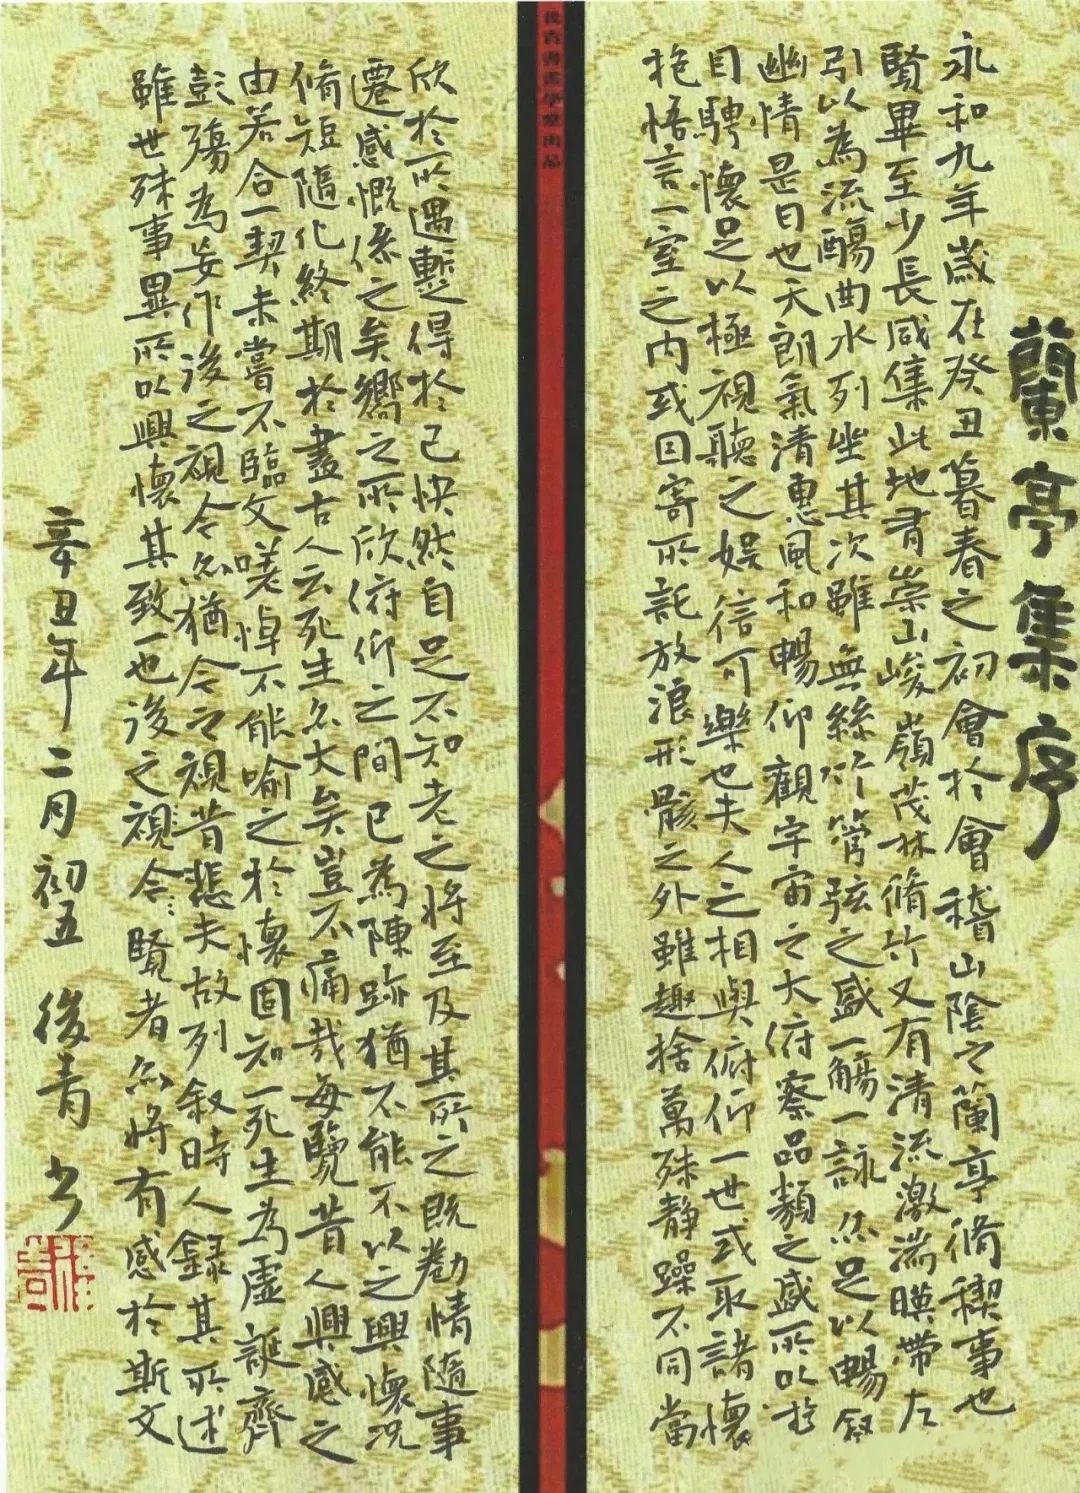 蘭亭集序
永和九年歲在癸丑暮春之初會於會稽山陰之蘭亭脩稧事也
賢畢至少長咸集此地有崇山峻嶺茂林脩竹又有清流激湍暎帶左
引以為流觴曲水列坐其次雖無絲竹管弦之盛一觴一詠亦足以暢敘
幽情是日也天朗氣清惠風和暢仰觀宇宙之大俯察品類之盛所以遊
目騁懷足以極視聽之娛信可樂也夫人之相與俯仰一世或取諸懷
抱悟言一室之內或因寄所託放浪形骸之外雖趣捨萬殊靜躁不同當
後青書畫學堂出品
欣於所遇暫得於己快然自足不知老之將至及其所之既勌情隨事
遷感慨係之矣嚮之所欣俯仰之間已為陳跡猶不能不以之興懷況
脩短隨化終期於盡古人云死生亦大矣豈不痛哉每覽昔人興感之
由若合一契未嘗不臨文嗟悼不能喻之於懷固知一死生為虛誕齊
彭殤為妄作後之視今亦猶今之視昔悲夫故列敘時人錄其所述
雖世殊事異所以興懷其致一也後之視今覽者亦將有感於斯文
辛丑年二月初五 後青書